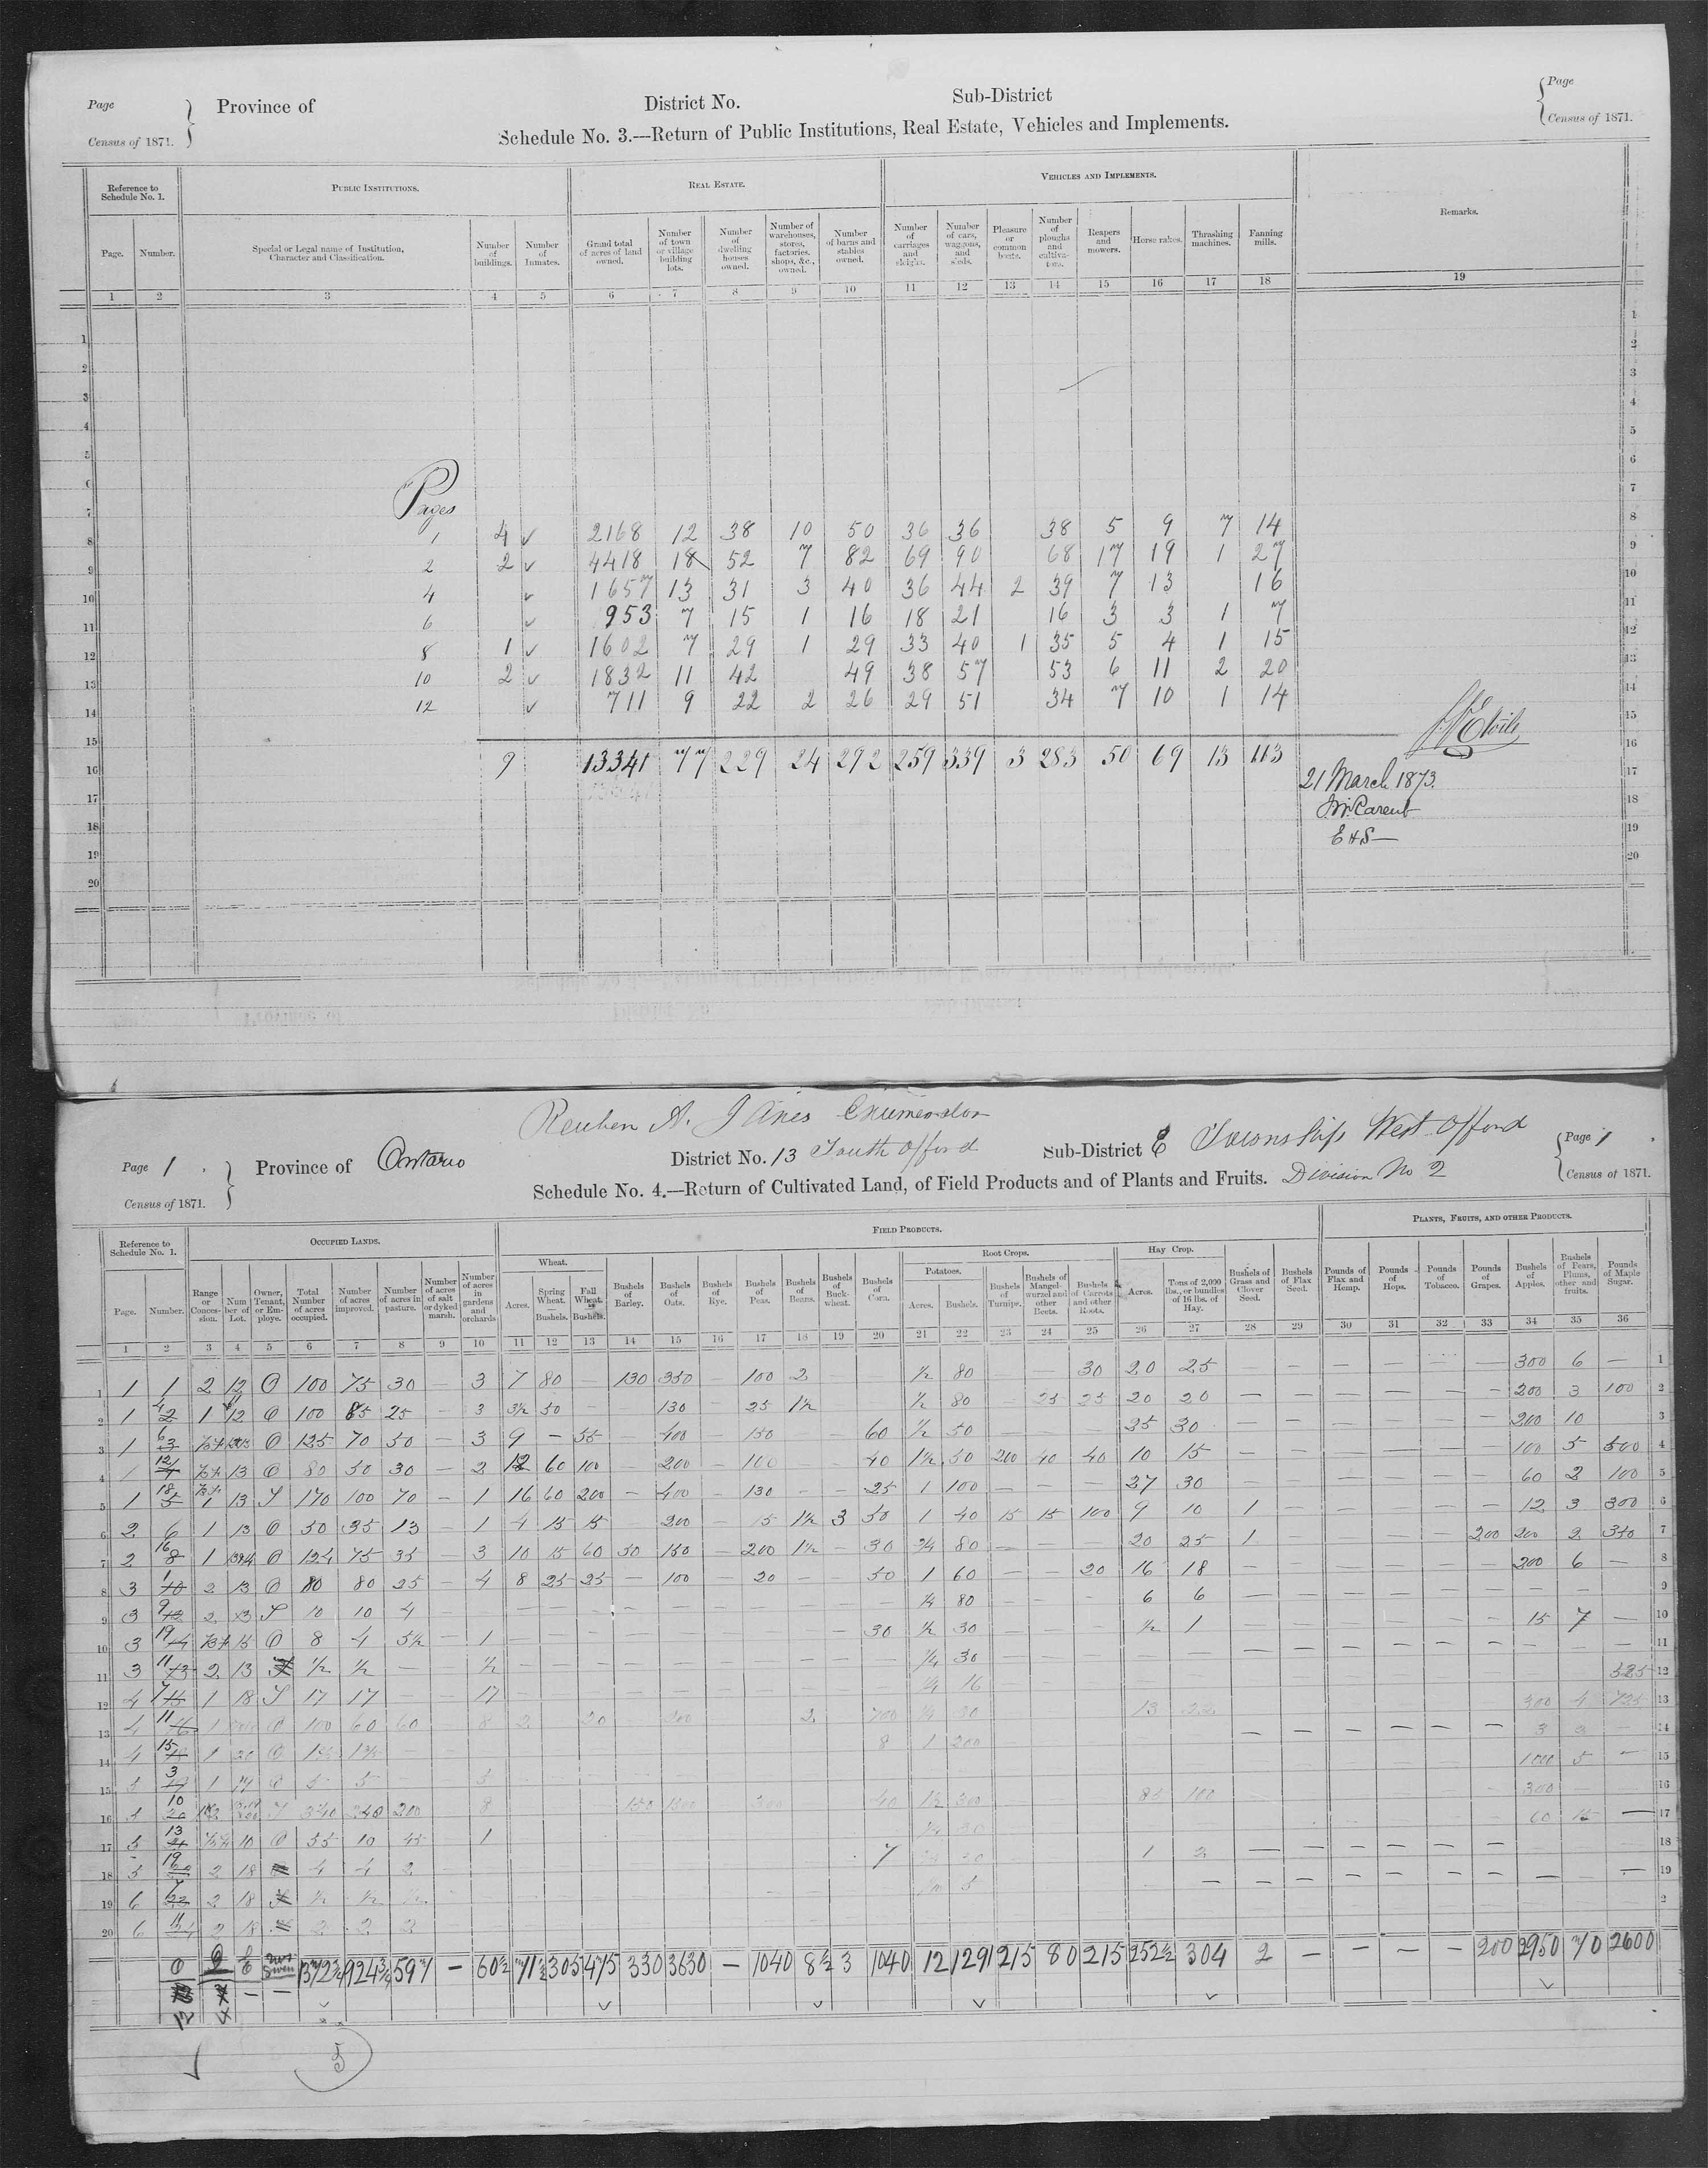 Page
Census of 1871.
Province of
District No.
Sub-District
Page
Census of 1871.
Schedule No. 3.—Return of Public Institutions, Real Estate, Vehicles and Implements.
Reference to Schedule No. 1.
Public Institutions.
Real Estate.
Vehicles and Implements.
Remarks.
Page. Number. Special or Legal name of Institution, Character and Classification. Number of buildings. Number of Inmates. Grand total of acres of land owned. Number of town or village building lots. Number of dwelling houses owned. Number of warehouses, stores, factories, shops, &c., owned. Number of barns and stables owned. Number of carriages and sleighs. Number of cars, waggons, and sleds. Pleasure or common boats. Number of ploughs and cultivators. Reapers and mowers. Horse rakes. Thrashing machines. Fanning mills.
1 2 3 4 5 6 7 8 9 10 11 12 13 14 15 16 17 18 19
Pages
1 4 ✓ 2168 12 38 10 50 36 36 38 5 9 7 14
2 2 ✓ 4418 18 52 7 82 69 90 68 17 19 1 27
4 ✓ 1657 13 31 3 40 36 44 2 39 7 13 16
6 ✓ 953 7 15 1 16 18 21 16 3 3 1 7
8 1 ✓ 1602 7 29 1 29 33 40 1 35 5 4 1 15
10 2 ✓ 1832 11 42 49 38 57 53 6 11 2 20
12 ✓ 711 9 22 2 26 29 51 34 7 10 1 14
9 13341 77 229 24 292 259 339 3 283 50 69 13 113
21 March 1873.
E H S
Reuben A. Enumerator
Page 1
Census of 1871.
Province of Ontario
District No. 13 South Oxford
Sub-District E Township West Oxford
Division No 2
Page 1
Census of 1871.
Schedule No. 4.—Return of Cultivated Land, of Field Products and of Plants and Fruits.
Reference to Schedule No. 1.
Occupied Lands.
Field Products.
Plants, Fruits, and other Products.
Wheat.
Root Crops.
Potatoes.
Hay Crop.
Page. Number. Range or Concession. Number of Lot. Owner, Tenant, or Employe. Total Number of acres occupied. Number of acres improved. Number of acres in pasture. Number of acres of salt or dyked marsh. Number of acres in gardens and orchards. Acres. Spring Wheat. Bushels. Fall Wheat. Bushels. Bushels of Barley. Bushels of Oats. Bushels of Rye. Bushels of Peas. Bushels of Beans. Bushels of Buckwheat. Bushels of Corn. Acres. Bushels. Bushels of Turnips. Bushels of Mangel-wurzel and other Beets. Bushels of Carrots and other Roots. Acres. Tons of 2,000 lbs., or bundles of 16 lbs. of Hay. Bushels of Grass and Clover Seed. Bushels of Flax Seed. Pounds of Flax and Hemp. Pounds of Hops. Pounds of Tobacco. Pounds of Grapes. Bushels of Apples. Bushels of Pears, Plums, other and fruits. Pounds of Maple Sugar.
1 2 3 4 5 6 7 8 9 10 11 12 13 14 15 16 17 18 19 20 21 22 23 24 25 26 27 28 29 30 31 32 33 34 35 36
1 1 1 2 12 O 100 75 30 — 3 7 80 — 130 350 — 100 2 ½ 80 — — 30 20 25 — — — — — — 300 6 — 1
2 1 2 1 12 O 100 85 25 — 3 3½ 50 — 130 — 25 1½ ½ 80 — 25 25 20 20 — — — — — — 200 3 100 2
3 1 O 125 70 50 — 3 9 — 55 — 400 — 150 — — 60 ½ 50 — — — 25 30 — — — — — — 200 10 3
4 13 O 80 50 30 — 2 12 60 100 — 200 — 100 — — 40 1½ 50 200 40 40 10 15 — — — — — — 100 5 500 4
5 1 1 13 T 170 100 70 — 1 16 60 200 — 400 — 130 — — 25 1 100 — — — 27 30 — — — — — — 60 2 100 5
6 2 6 1 13 O 50 35 13 — 1 4 15 15 — 200 — 15 1½ 3 50 1 40 15 15 100 9 10 1 — — — — — 12 3 300 6
7 2 1 O 124 75 35 — 3 10 15 60 50 150 — 200 1½ — 30 ¾ 80 — — — 20 25 1 — — — — 200 200 2 350 7
8 3 2 13 O 80 80 25 — 4 8 25 25 — 100 — 20 — — 50 1 60 — — 20 16 18 — — — — — — 200 6 — 8
9 3 2 13 T 10 10 4 ¼ 80 6 6 9
10 3 15 O 8 4 3½ — 1 30 ½ 30 ½ 1 15 7 — 10
11 3 2 13 ½ ½ — ½ ¼ 30 11
12 4 1 18 T 17 17 — — 17 ¼ 16 525 12
13 4 1 O 100 60 60 8 2 20 200 2 700 13 22 300 4 725 13
14 4 1 20 O 8 1 200 14
15 5 1 O 5 5 5 1000 5 — 15
16 5 T 340 240 200 8 150 1500 300 40 1½ 300 85 100 300 16
17 5 10 O 55 10 45 1 60 15 — 17
18 5 2 18 4 4 2 7 1 2 18
19 6 2 18 ½ ½ 19
20 6 2 18 2 2 2
1372¾ 924¾ 597 — 60½ 71½ 305 475 330 3630 — 1040 8½ 3 1040 12 1291 215 80 215 252½ 304 2 — — — — 200 2950 70 2600
5